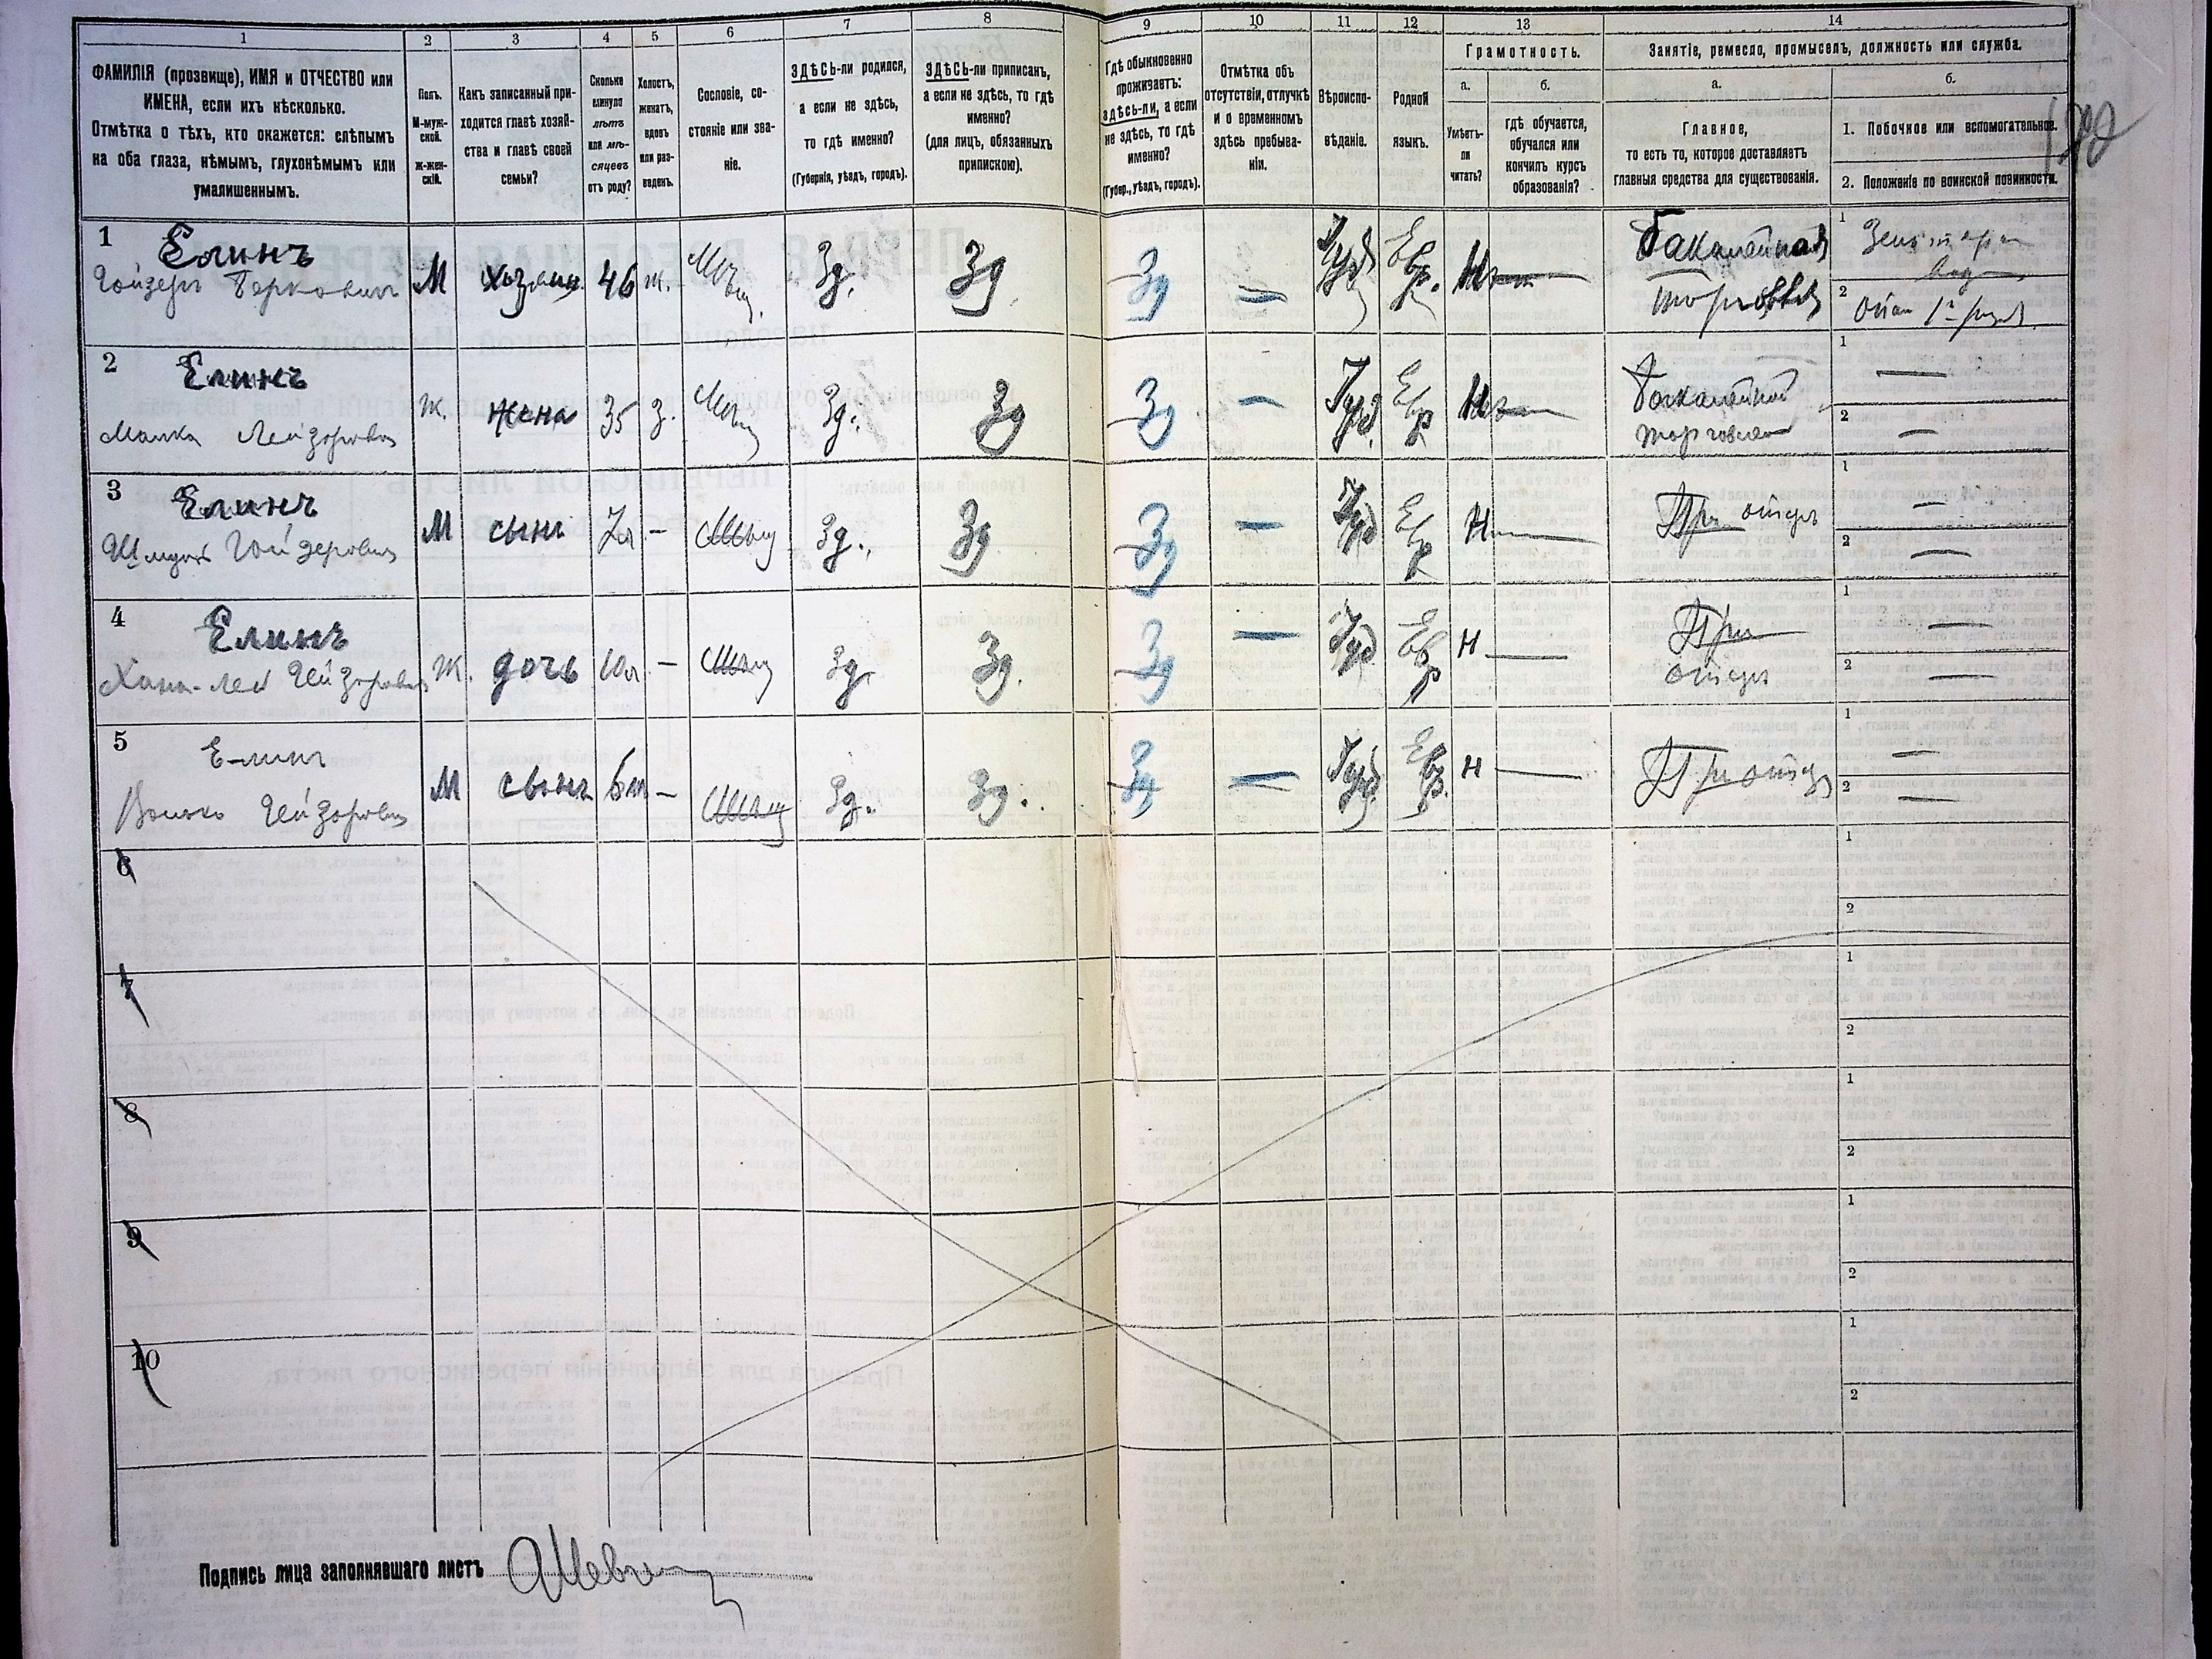 1 2 3 4 5 6 7 8 9 10 11 12 13 14
ФАМИЛІЯ (прозвище), ИМЯ и ОТЧЕСТВО или
ИМЕНА, если ихъ нѣсколько.
Отмѣтка о тѣхъ, кто окажется: слѣпымъ
на оба глаза, нѣмымъ, глухонѣмымъ или
умалишеннымъ.
Полъ.
М-муж-
ской.
ж-жен-
скій.
Какъ записанный при-
ходится главѣ хозяй-
ства и главѣ своей
семьи?
Сколько
минуло
лѣтъ
или мѣ-
сяцевъ
отъ роду?
Холостъ,
женатъ,
вдовъ
или раз-
веденъ.
Сословіе, со-
стояніе или зва-
ніе.
ЗДѢСЬ-ли родился,
а если не здѣсь,
то гдѣ именно?
(Губернія, уѣздъ, городъ).
ЗДѢСЬ-ли приписанъ,
а если не здѣсь, то гдѣ
именно?
(для лицъ, обязанныхъ
припискою).
Гдѣ обыкновенно
проживаетъ:
здѣсь-ли, а если
не здѣсь, то гдѣ
именно?
(Губер., уѣздъ, городъ).
Отмѣтка объ
отсутствіи, отлучкѣ
и о временномъ
здѣсь пребыва-
ніи.
Вѣроиспо-
вѣданіе.
Родной
языкъ.
Грамотность.
а.
Умѣетъ-
ли
читать?
б.
гдѣ обучается,
обучался или
кончилъ курсъ
образованія?
Занятіе, ремесло, промыселъ, должность или служба.
а.
Главное,
то есть то, которое доставляетъ
главныя средства для существованія.
б.
1. Побочное или вспомогательное.
2. Положеніе по воинской повинности.
1 Елинъ
Берковичъ М хозяин 46 ж. Зд. Зд Зд — Іуд Евр. Н — Бакалейная
торговля
1
2
2 Елинъ
Малка Лейзоровна Ж. жена 35 з. Зд. Зд Зд — Іуд. Евр Н — Бакалейной
торговлей
1 —
2 —
3 Елинъ
М сынъ 7л — Зд. Зд Зд — Іуд Евр Н — При отцѣ
1 —
2 —
4 Елинъ
Хана-Лея Ж. дочь — Зд. Зд. Зд — Іуд Евр Н — При
отцѣ
1 —
2 —
5 Елинъ
М сынъ — Зд. Зд. Зд — Іуд. Евр. Н — При отцѣ
1 —
2 —
6 1
2
7 1
2
8 1
2
9 1
2
10 1
2
Подпись лица заполнявшаго листъ